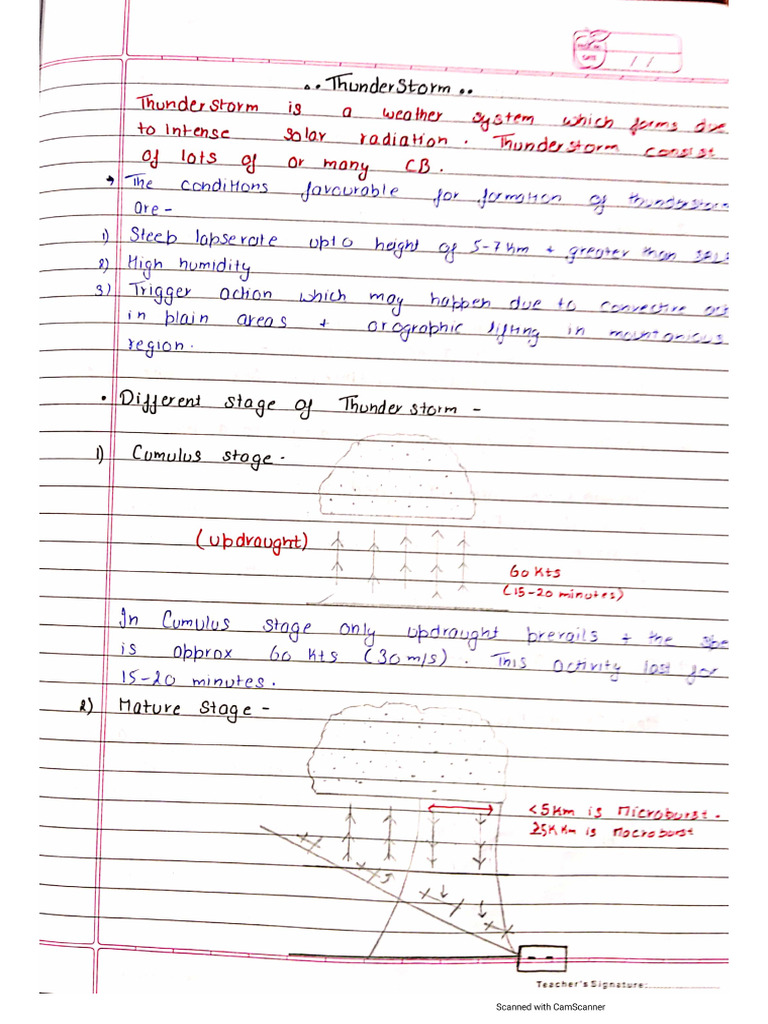 DATE
/ /
ThunderStorm
Thunderstorm is a weather system which forms due
to Intense solar radiation. Thunderstorm consist
of lots of or many CB.
→ The conditions favourable for formation of thunderstorm
are-
1) Steep lapserate upto height of 5-7 Km + greater than
2) High humidity
3) Trigger action which may happen due to convective
in plain areas + orographic lifting in mountanious
region.
• Different stage of Thunderstorm -
1) Cumulus stage -
(updraught)
60 Kts
(15-20 minutes)
In Cumulus stage only updraught prevails + the
is approx 60 kts (30 m/s). This activity last for
15-20 minutes.
2) Mature Stage -
<5Km is Microburst.
Km is Macroburst
Teacher's Signature:
Scanned with CamScanner